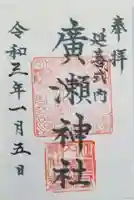 奉拝
延喜式内
廣瀬神社
令和三年一月五日